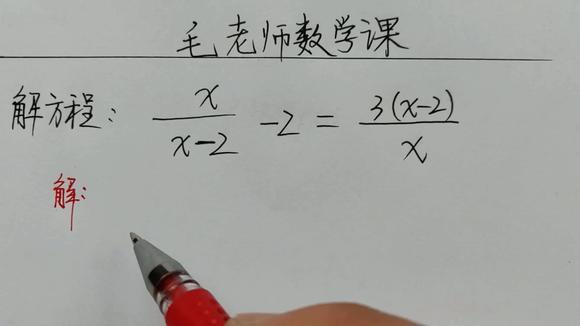 毛老师数学课
解方程: x/(x-2) -2 = 3(x-2)/x
解: